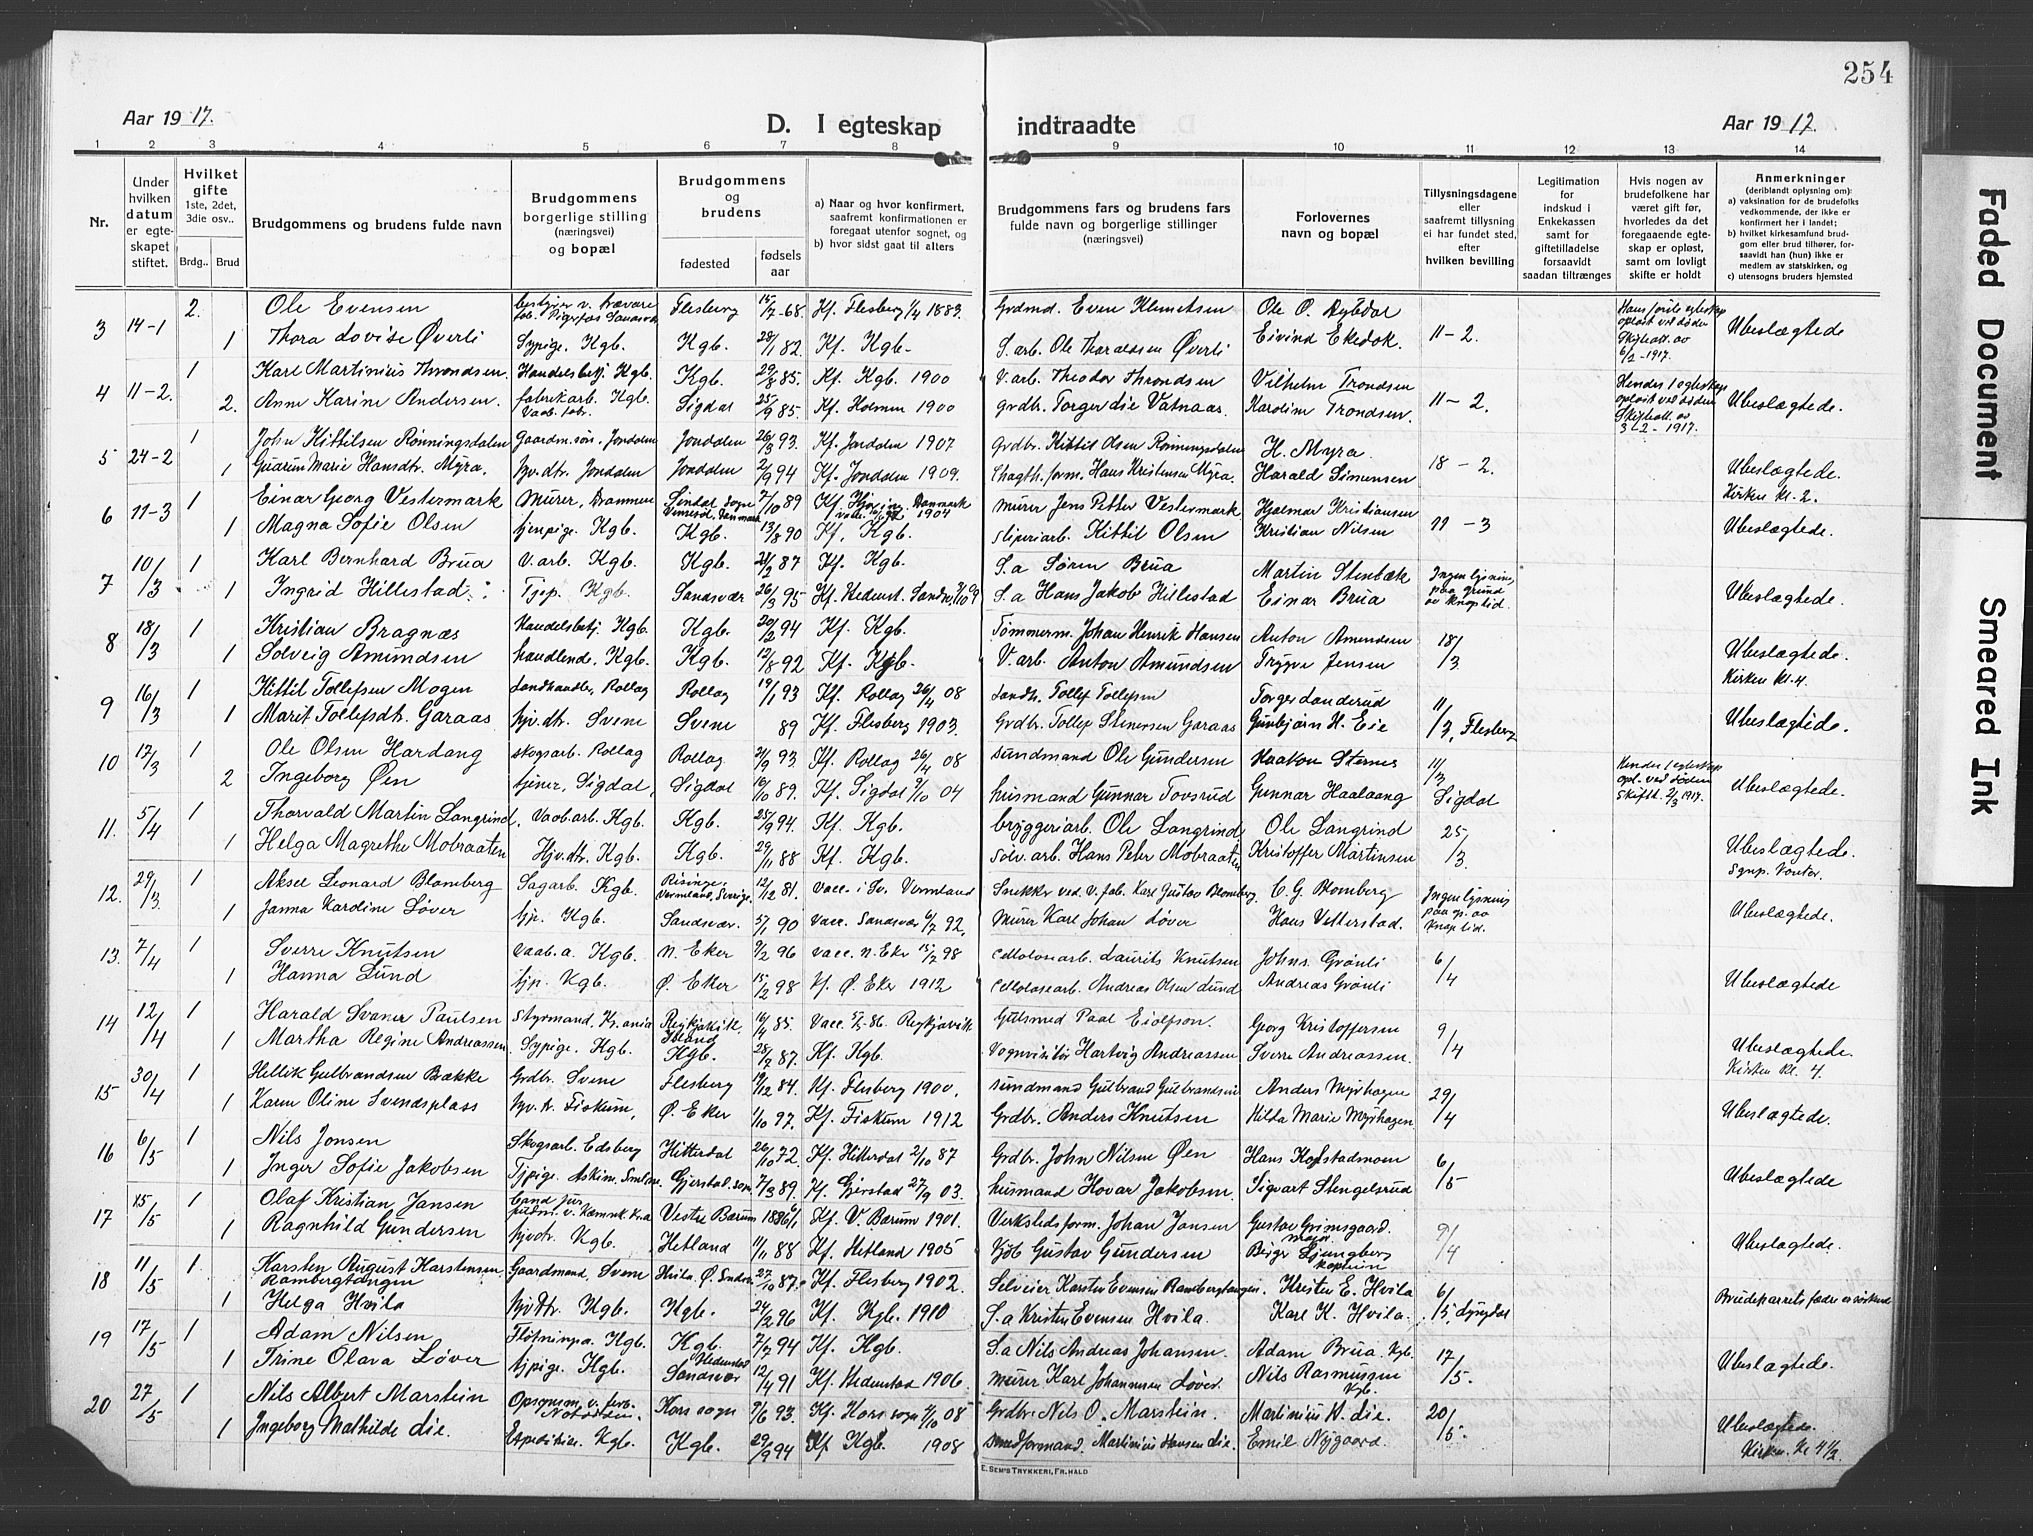 254
Aar 1917.
D. I egteskap indtraadte
Aar 1917.
1 2 3 4 5 6 7 8 9 10 11 12 13 14
Nr.
Under hvilken datum er egteskapet stiftet.
Hvilket gifte 1ste, 2det, 3die osv..
Brdg.. Brud
Brudgommens og brudens fulde navn
Brudgommens borgerlige stilling (næringsvei) og bopæl
Brudgommens og brudens
fødested
fødsels aar
a) Naar og hvor konfirmert, saafremt konfirmationen er foregaat utenfor sognet, og
b) hvor sidst gaat til alters
Brudgommens fars og brudens fars fulde navn og borgerlige stillinger (næringsvei)
Forlovernes navn og bopæl
Tillysningsdagene eller saafremt tillysning ei har fundet sted, efter hvilken bevilling
Legitimation for indskud i Enkekassen samt for giftetilladelse forsaavidt saadan tiltrænges
Hvis nogen av brudefolkene har været gift før, hvorledes da det foregaaende egteskap er opløst, samt om lovligt skifte er holdt
Anmerkninger
(deriblandt oplysning om):
a) vaksination for de brudefolks vedkommende, der ikke er konfirmert her i landet;
b) hvilket kirkesamfund brudgom eller brud tilhører, forsaavidt han (hun) ikke er medlem av statskirken, og
c) utensogns bruders hjemsted
3 14-1 2. Ole Evensen Flesberg 15/7-68. Kf. Flesberg 1/4 1883. Grdmd. Even Klemetsen Ole O. Dybdal
1 Thora Lovise Øverli Sypige. Kgb. Kgb. 28/1 82. Kf. Kgb. S. arb. Ole Thoraldsen Øverli Eivind Ekedok. 11-2. Ubeslægtede
Hans første egteskap opløst ved døden Skifteatt. av 6/2-1917.
4 11-2. 1 Karl Martinius Throndsen. Handelsbetj. Kgb. Kgb. 29/8 85. Kf. Kgb. 1900 V. arb. Theodor Throndsen Vilhelm Trondsen
2. Anne Karine Andersen. fabrikarb. Kgb. Vaabfabr. Sigdal 25/9 85 Kf. Holmen 1900 Grdbr. Torger die Vatnaas. Karoline Trondsen. 11-2. Ubeslægtede.
Hendes 1 egteskap opløst ved døden Skifteatt. av 3-2-1917.
5 24-2 1 John Kittilsen Rønningsdalen Gaardm. søn, Jondalen Jondalen 26/3 93. Kf. Jondalen 1907 Grdbr. Kittil Olsen Rønningsdalen H. Myra.
1 Gunrun Marie Hansdtr. Myra. hjv. dtr. Jondalen Jondalen 2/9 94 Kf. Jondalen 1909. Hans Kristensen Myra. Harald Simensen 18-2. Ubeslægtede. Kirken kl. 2.
6 11-3 1 Einar Georg Vestermark Murer, Drammen Sindal sogn Danmark 7/10 89 Danmark 1904 Murer Jens Petter Vestermark Hjalmar Kristiansen
1 Magna Sofie Olsen tjenpige. Kgb. Kgb. 13/8 90 Kf. Kgb. Sliperiarb. Kittil Olsen Kristian Nilsen 11-3 Ubeslægtede.
7 10/3 1 Karl Bernhard Brua V. arb. Kgb. Kgb. 87 Kf. Kgb. S. a Søren Brua Martin Stenbæk
1 Ingrid Hillestad Tjep. Kgb. Sandsvær 26/3 95 Kf. Hedenst. Sandsv. S. a Hans Jakob Hillestad Einar Brua Ingen lysning paa grund av knap tid. Ubeslægtede.
8 18/3 1 Kristian Bragnæs Handelsbetj. Kgb. Kgb. 20/2 94 Kf. Kgb. Tømmerm. Johan Henrik Hansen Anton Amundsen 18/3
1 Solveig Amundsen handlende, Kgb. Kgb. 12/8 92 Kf. Kgb. V. arb. Anton Amundsen Trygve Jensen Ubeslægtede. Kirken kl. 4.
9 16/3 1 Kittil Tollefsen Mogen Landhandler, Rollag Rollag 19/1 93 Kf. Rollag 26/4 08 Landh. Tollef Tollefsen Torger Landerud 11/3, Flesberg
1 Marit Tollefsdtr. Garaas hjv. dtr. Svene Svene 89 Kf. Flesberg 1903. Grdbr. Tollef Stenersen Garaas Gunbjørn H. Eie Ubeslægtede.
10 17/3 1 Ole Olsen Hardang Skogsarb. Rollag Rollag 21/9 93. Kf. Rollag 26/4 08 Sundmand Ole Gundersen Haakon Stærnes 11/3 Sigdal
2 Ingeborg Øen tjener, Sigdal, Sigdal 16/10 89. Kf. Sigdal 9/10 04 husmand Gunnar Tovsrud Gunnar Haalaang Ubeslægtede.
Hendes 1 egteskap opl. ved døden Skifteatt. 2/3 1917.
11. 5/4 1 Thorvald Martin Langrind. Vaabarb. Kgb. Kgb. 25/9 94. Kf. Kgb. bryggeriarb. Ole Langrind Ole Langrind 25/3
1 Helga Magrethe Mobraaten Hjv. dtr. Kgb. Kgb. 29/11 88 Kf. Kgb. Sølv. arb. Hans Peter Mobraaten Kristoffer Martinsen Ubeslægtede.
12. 29/3 1 Aksel Leonard Blomberg Sagarb. Kgb. Risinge, Vermland, Sverige. 12/12 81. vacc. i Sv. Vermland Snekker ved V. fab. Karl Gustav Blomberg C. G. Blomberg Ingen lysning paa gr. av knap tid.
1 Janna Karoline Løver tjp. Kgb. Sandsvær. 5/1 90 vacc. Sandsvær 6/7 92. Murer Karl Johan Løver Hans Vetterstad. Ubeslægtede.
13. 7/4 1 Sverre Knutsen Vaab. a. Kgb. N. Eker 7/2 96 vacc. N. Eker 15/7 98 Cellulosearb. Laurits Knutsen Johns. Grønli 6/4
1 Hanna Lund tjp. Kgb. Ø. Eker 15/2 98 Kf. Ø. Eker 1912 Cellulosearb. Andreas Olsen Lund Andreas Grønli Ubeslægtede
14 12/4 1 Harald Svaner Paulsen Styrmand, Kr.ania Reykjavik, Island 16/4 85. Vacc. 86. Reykjavik Gulsmed Paal Eiolfson. Georg Kristoffersen 9/4
1 Martha Regine Andreassen. Sypige. Kgb. Kgb. 28/7 87. Kf. Kgb. Vognvisitør Hartvig Andreassen Sverre Andreassen. Ubeslægtede. Kirken kl. 4
15 30/4 1 Hellik Gulbrandsen Bække Grdbr. Svene Flesberg 19/12 84. Kf. Flesberg 1900. Sundmand Gulbrand Gulbrandsen Anders Myrhagen 29/4
1 Karen Oline Svendsplass hjv. d. Fiskum, Ø. Eker 1/10 97. Kf. Fiskum 1912 Grdbr. Anders Knutsen Hilda Marie Myrhagen. Ubeslægtede.
16 6/5 1 Nils Jonsen Skogsarb. Edsberg Hitterdal 26/10 72. Kf. Hitterdal 2/10 87 Grdbr. John Nilsen Øen Hans Kopstadmoen 6/5
1 Inger Sofie Jakobsen Tjpige. Askim. Gjerstad. sogn 7/3 89. Kf. Gjerstad 27/9 03. husmand Hovar Jakobsen. Sigvart Stengelsrud Ubeslægtede
17 15/5 1 Olaf Kristian Jansen Cand jur Vestre Bærum 1886 Kf. V. Bærum 1901. Verkstedsform. Johan Jansen Gustav Grimsgaard. 9/4
1 Ragnhild Gundersen hjvdtr. Kgb. Hetland 11/11 88 Kf. Hetland 1905 Kjøb Gustav Gundersen Birger Ljungberg kaptein Ubeslægtede.
18 11/5 1 Karsten August Karstensen Rambergtangen Gaardmand, Svene Hvila, Ø. 27/10 87. Kf. Flesberg 1902. Selveier Karsten Evensen Rambergtangen. Kristen E. Hvila 6/5, Lyngdal
1 Helga Hvila hjvdtr. Kgb. Kgb. 24/2 96 Kf. Kgb. 1910 S. a Kristen Evensen Hvila. Karl K. Hvila Brudeparrets fædre er søskend
19 17/5 1 Adam Nilsen Fløtningsa. Kgb. Kgb. 7/7 94 Kf. Kgb. S. a Nils Andreas Johansen. Adam Brua. Kgb. 17/5.
1 Trine Olava Løver tjpige. Kgb. Hedenstad Sandsvær 12/4 91 Kf. Hedenstad 1906. Murer Karl Johannesen Løver. Nils Rasmussen Kgb. Ubeslægtede.
20 27/5 1 Nils Albert Marstein Notodden. Kors sogn 7/6 93. Kf. Kors sogn 4/10 08 Grdbr. Nils O. Marstein. Martinius H. Lie. 20/5.
1 Ingeborg Mathilde Lie. Kgb. Kgb. 29/9 94 Kf Kgb. 1908 Smedformand. Martinius Hansen Lie. Emil Nygaard. Ubeslægtede. Kirken. Kl 4 1/2.
E. SEM'S TRYKKERI, FR.HALD
Faded Document
Smeared Ink